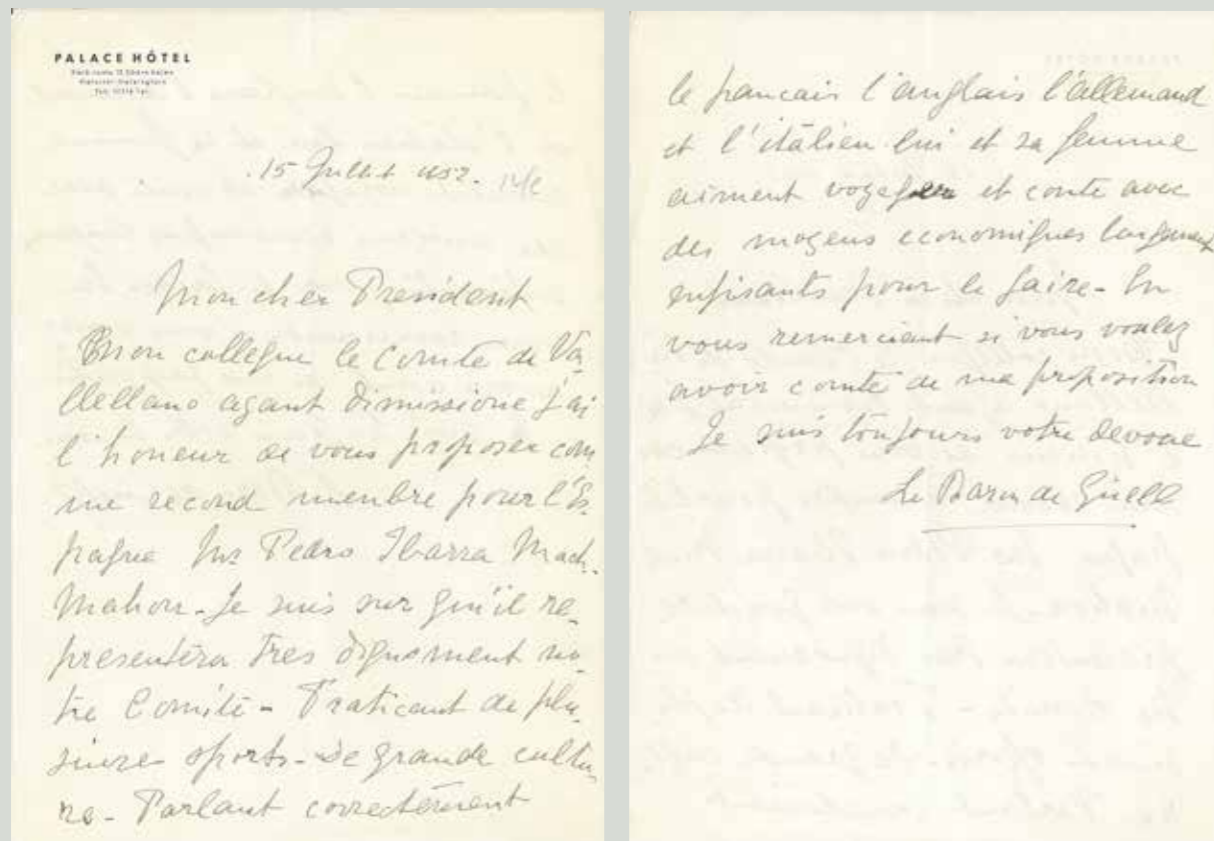 PALACE HÔTEL
15 Juillet 1952.
Mon cher President
Mon collegue le Comte de Va
llellano ayant dimissione j'ai
l'honeur de vous proposer com
me second menbre pour l'Es
pagne Mr Pedro Ibarra Mach
Mahon - Je suis sur qu'il re
presentera tres dignement no
tre Comité - Praticant de plu
sieures sports - de grande cultu
re - Parlant correctement
le francais l'anglais l'allemand
et l'italien lui et sa femme
aiment voyager et conte avec
des moyens economiques largement
sufisants pour le faire - En
vous remerciant si vous voulez
avoir comte de ma proposition
Je suis toujours votre devoue
Le Baron de Güell